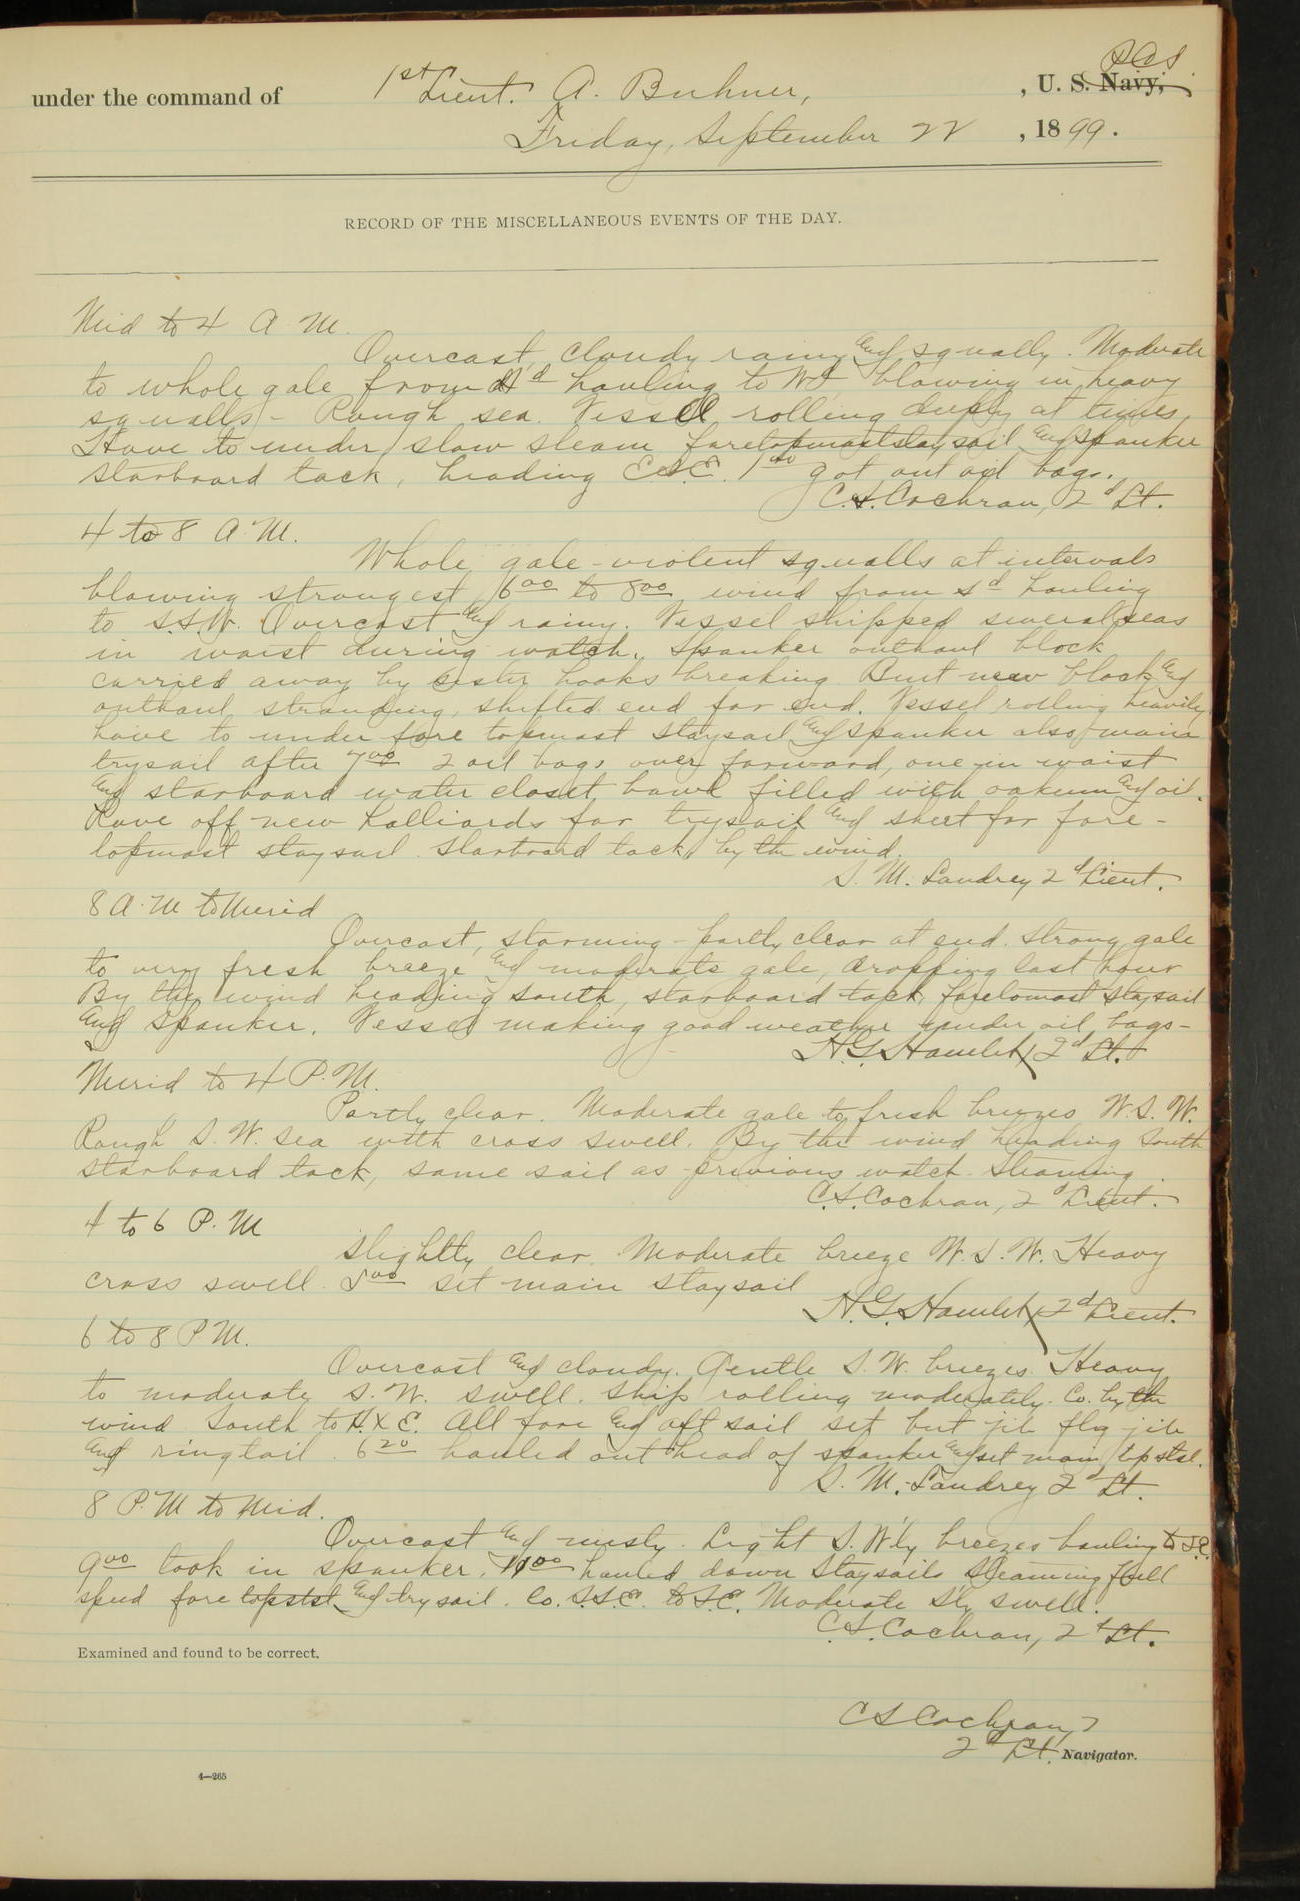 R C S.
under the command of 1st Lieut. A. Buhner, , U. S. Navy,
Friday, September 22 , 1899.
RECORD OF THE MISCELLANEOUS EVENTS OF THE DAY.
Mid to 4 A M.
Overcast, cloudy rainy and squally. Moderate
to whole gale from hauling to blowing in heavy
squalls - Rough sea. Vessel rolling deeply at times,
Hove to under slow steam foretopmast staysail and spanker
starboard tack, heading E.S.E. 1 40 got out oil bags.
C.S. Cochran, 2d Lt.
4 to 8 A M.
Whole gale - violent squalls at intervals
blowing strongest 6 00 to 8 00 wind from Sd hauling
to S.S.W. Overcast and rainy. Vessel shipped several seas
in waist during watch. Spanker outhaul block
carried away by sister hooks breaking. Bent new block and
outhaul stranding, shifted end for end. Vessel rolling heavily
hove to under fore topmast staysail and spanker also main
trysail after 7 00 2 oil bags over forward, one in waist
and starboard water closet bowl filled with oakum and oil.
Rove off new halliards for trysail and sheet for fore-
topmast staysail. Starboard tack, by the wind.
S. M. Landrey 2d Lieut.
8 A.M to Merid
Overcast, storming - partly clear at end. Strong gale
to very fresh breeze and moderate gale, dropping last hour
By the wind heading south, starboard tack, foretomast staysail
and spanker. Vessel making good weather under oil bags -
H.G. Hamlet 2d Lt.
Merid to 4 P.M.
Partly clear. Moderate gale to fresh breezes W.S.W.
Rough S.W. sea with cross swell. By the wind heading South
starboard tack, same sail as previous watch. Steaming.
C.S. Cochran, 2d Lieut.
4 to 6 P. M
Slightly clear. Moderate breeze W.S.W. Heavy
cross swell. 5 00 set main staysail
H.G. Hamlet 2d Lieut.
6 to 8 P M.
Overcast and cloudy. Gentle S.W. breezes. Heavy
to moderate S.W. swell. Ship rolling moderately. Co. by the
wind South to S. x E. All fore and aft sail set but jib flg jib
and ringtail. 6 20 hauled out head of spanker and set main top stsl.
S. M. Landrey 2d Lt.
8 P.M to Mid.
Overcast and misty. Light S.W'ly breezes hauling to S.E.
9 00 took in spanker, 11 00 hauled down staysails Steaming full
speed fore topstsl and trysail. Co. S.S.E. to S.E. Moderate S'ly swell.
C.S. Cochran, 2d Lt.
Examined and found to be correct.
C S Cochran,
2d Lt. Navigator.
4—265